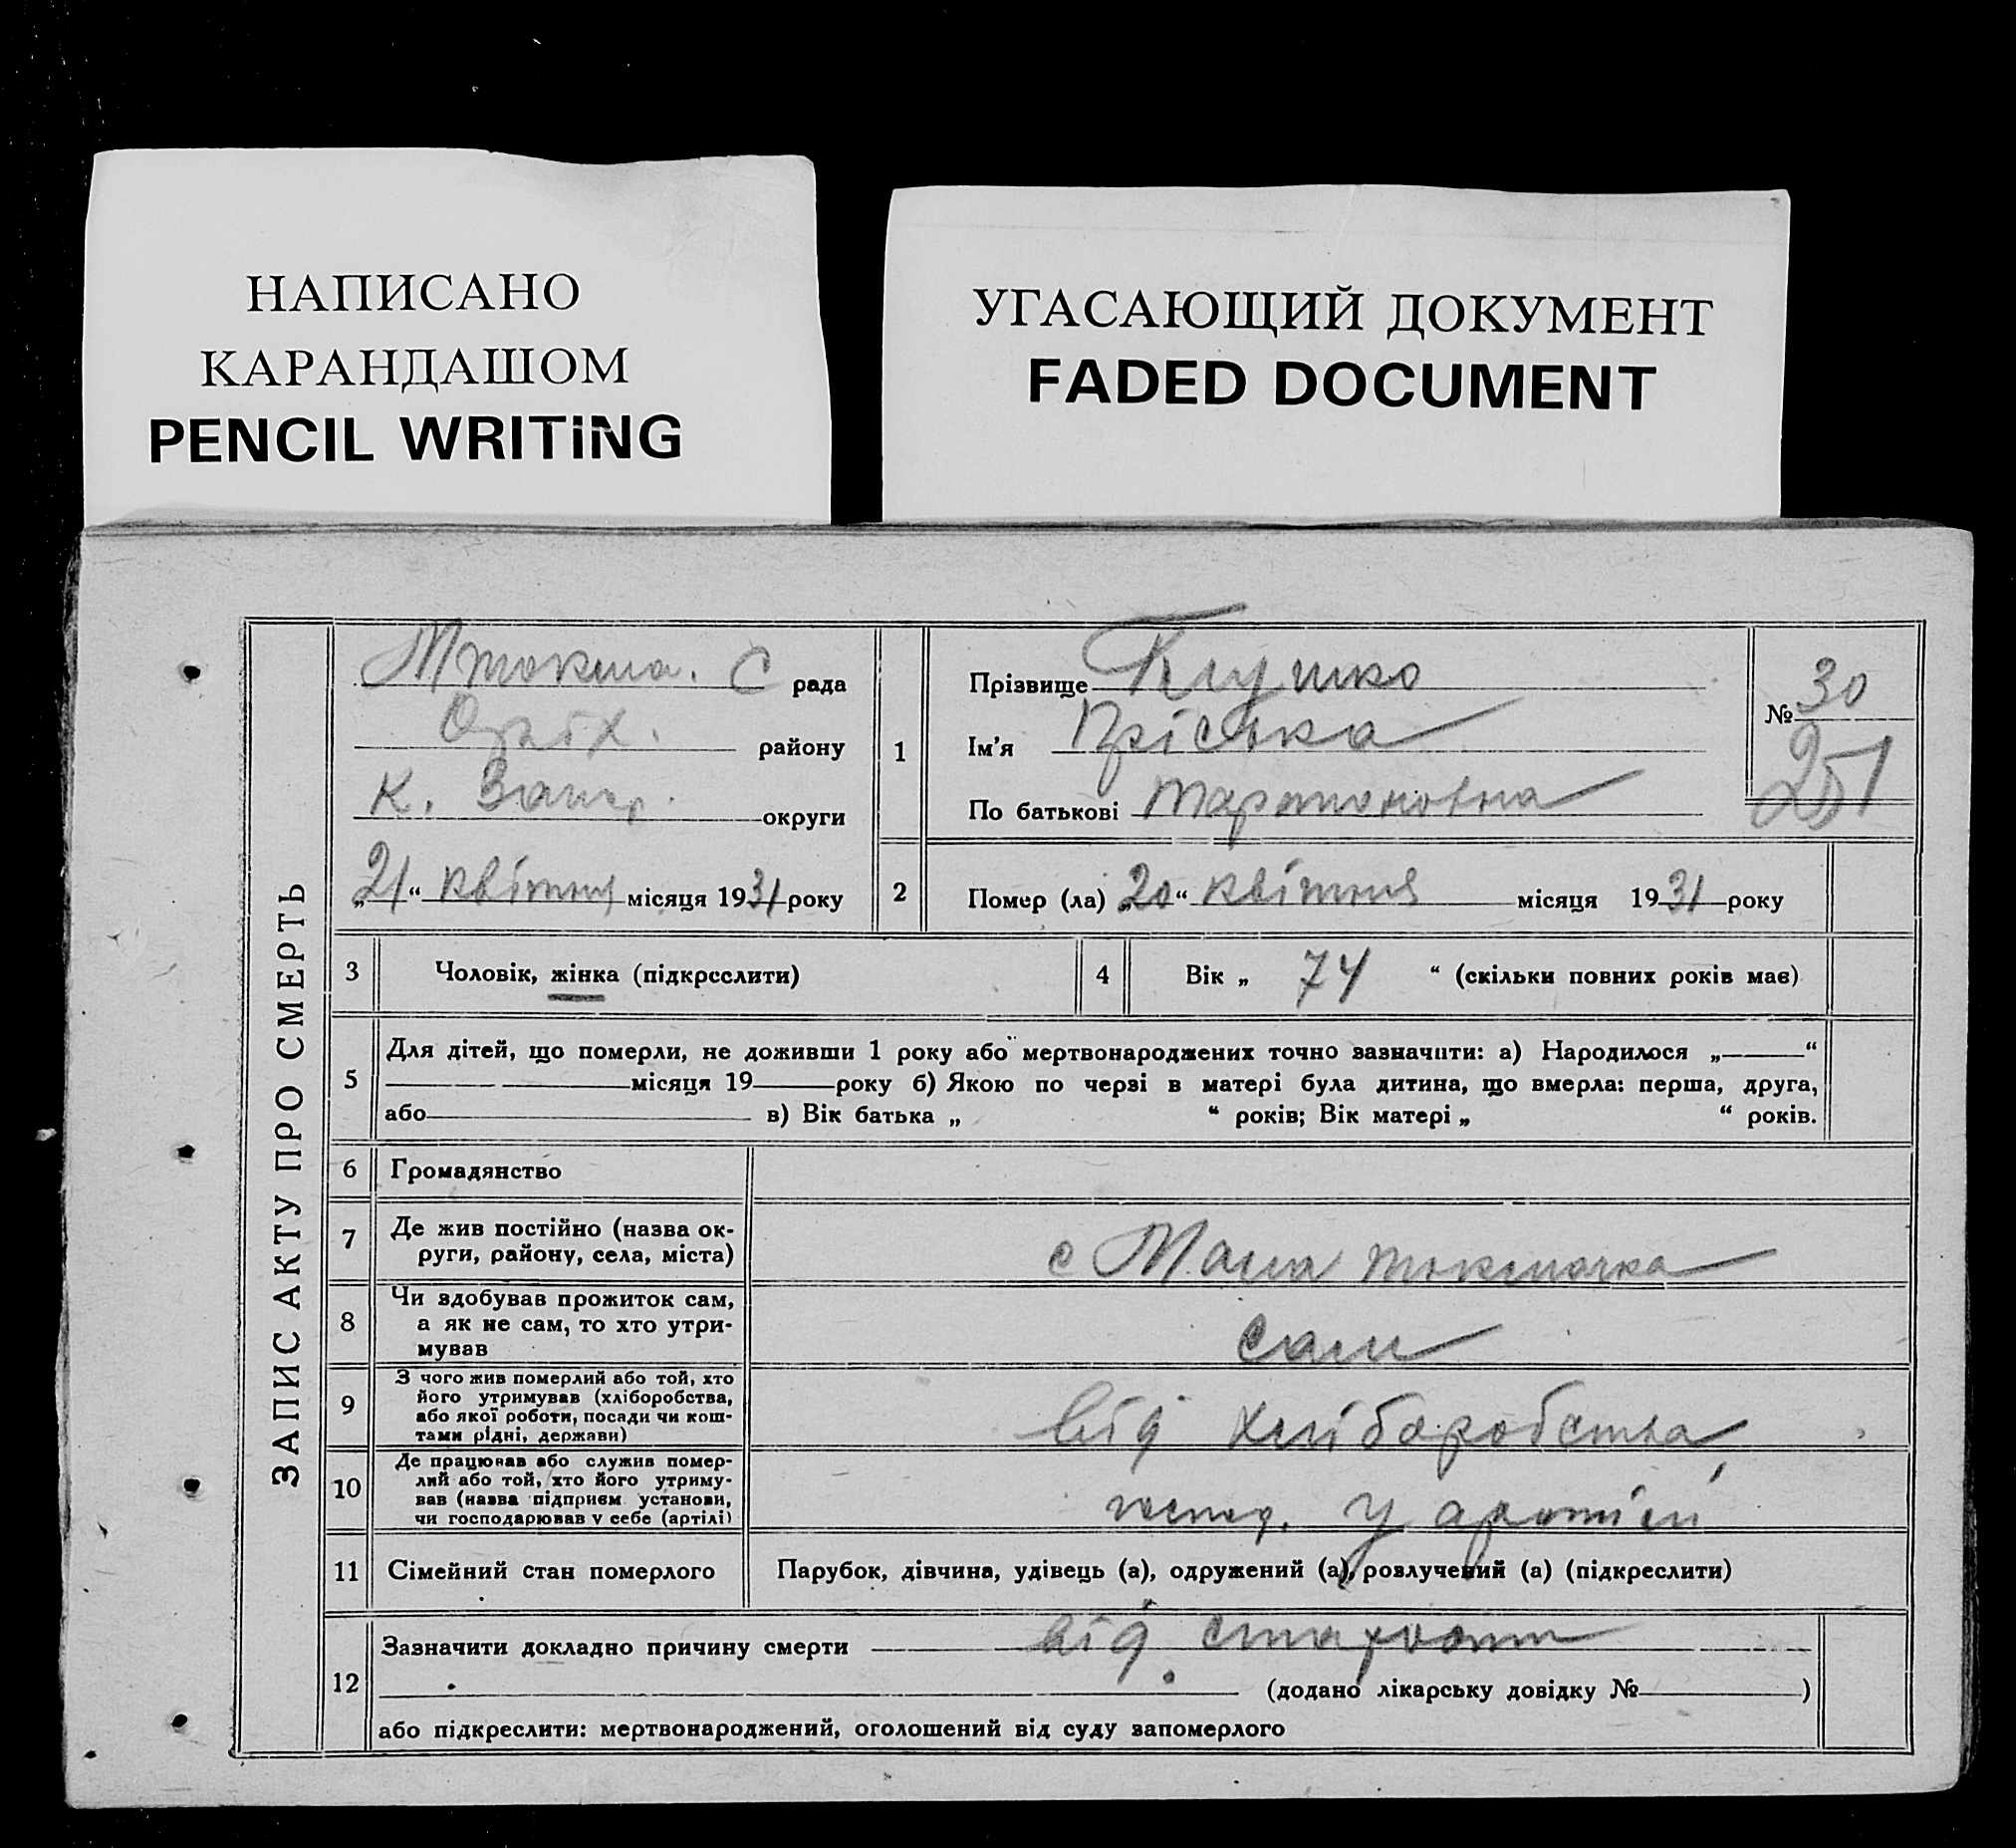 НАПИСАНО
КАРАНДАШОМ
PENCIL WRITING
УГАСАЮЩИЙ ДОКУМЕНТ
FADED DOCUMENT
ЗАПИС АКТУ ПРО СМЕРТЬ
Мтокма. С рада
Оріх. району
К. Запор. округи
„21“ квітня місяця 1931 року
1
Прізвище
Ім'я Пріська
По батькові
№ 30
251
2 Помер (ла) „20“ квітня місяця 1931 року
3 Чоловік, жінка (підкреслити)
4 Вік „ 74 “ (скільки повних років має)
5 Для дітей, що померли, не доживши 1 року або мертвонароджених точно зазначити: а) Народилося „——“
——— місяця 19—— року б) Якою по черзі в матері була дитина, що вмерла: перша, друга,
або——— в) Вік батька „ “ років; Вік матері „ “ років.
6 Громадянство
7 Де жив постійно (назва ок-
руги, району, села, міста)
с Мала токмачка
8 Чи здобував прожиток сам,
а як не сам, то хто утри-
мував
сам
9 З чого жив померлий або той, хто
його утримував (хліборобства,
або якої роботи, посади чи кош-
тами рідні, держави)
від хліборобства
10 Де працював або служив помер-
лий або той, хто його утриму-
вав (назва підприєм. установи,
чи господарював у себе (артілі)
господ. у артілі
11 Сімейний стан померлого
Парубок, дівчина, удівець (а), одружений (а), розлучений (а) (підкреслити)
12 Зазначити докладно причину смерти від старости
(додано лікарську довідку №———)
або підкреслити: мертвонароджений, оголошений від суду запомерлого